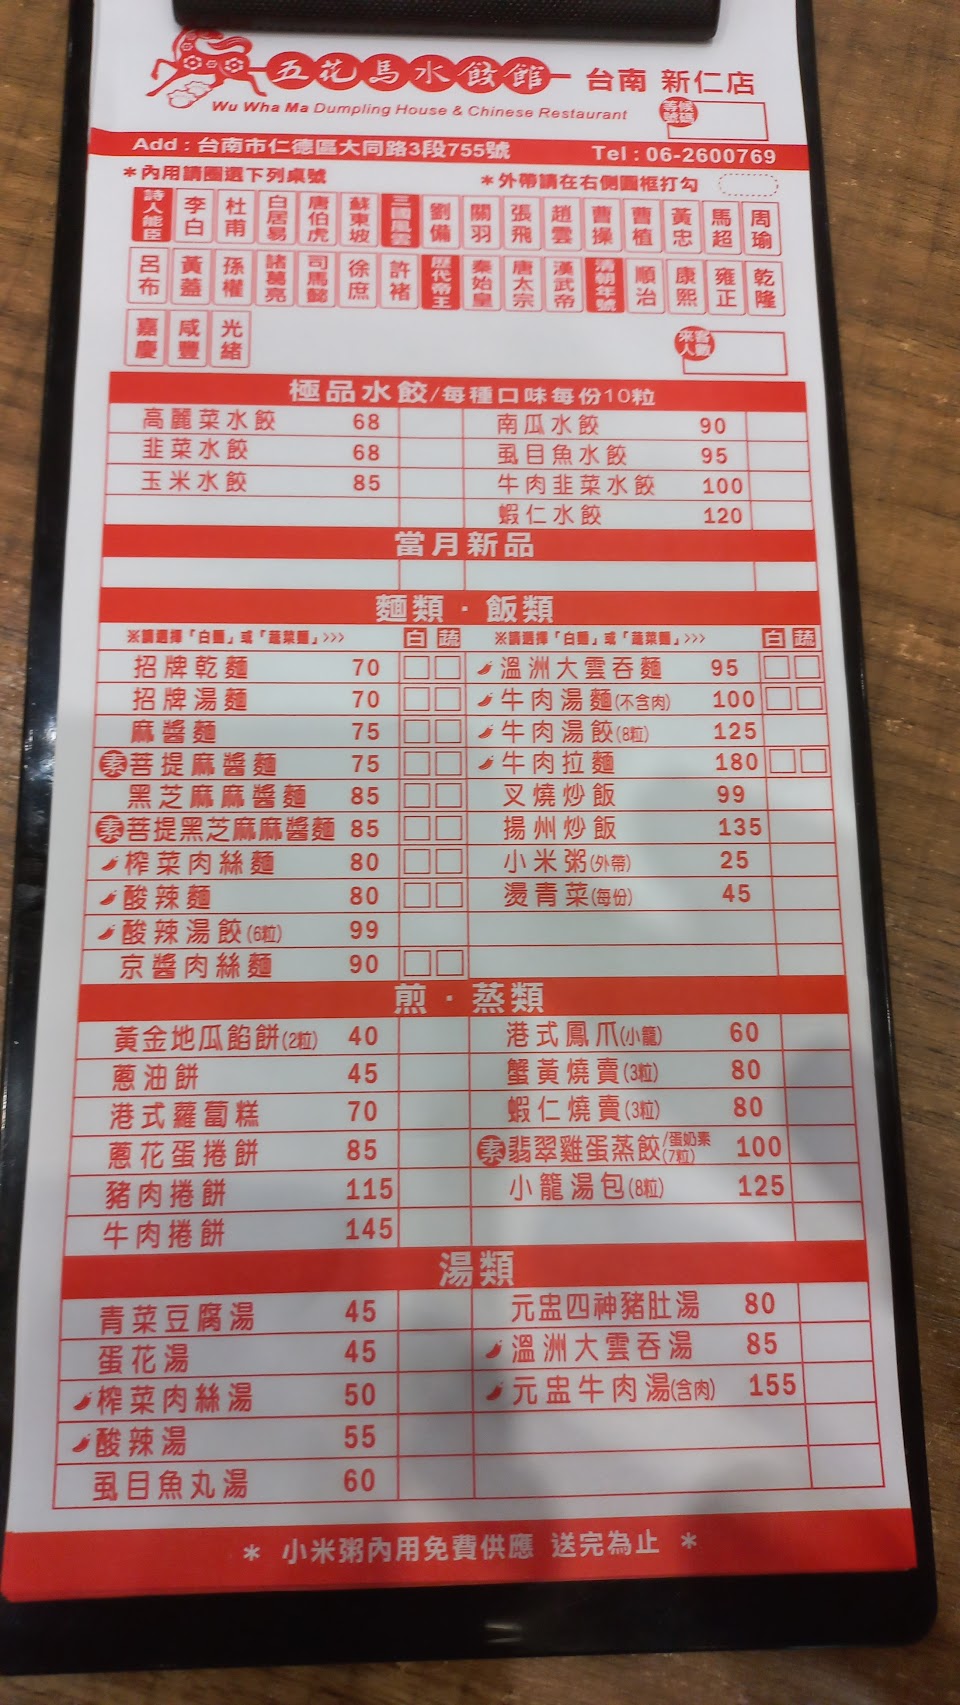 五花馬水餃館 台南 新仁店
Wu Wha Ma Dumpling House & Chinese Restaurant
等候號碼
Add : 台南市仁德區大同路3段755號 Tel : 06-2600769
*內用請圈選下列桌號 *外帶請在右側圓框打勾
詩人能臣 李白 杜甫 白居易 唐伯虎 蘇東坡 三國風雲 劉備 關羽 張飛 趙雲 曹操 曹植 黃忠 馬超 周瑜
呂布 黃蓋 孫權 諸葛亮 司馬懿 徐庶 許褚 歷代帝王 秦始皇 唐太宗 漢武帝 清朝年號 順治 康熙 雍正 乾隆
嘉慶 咸豐 光緒 來客人數
極品水餃/每種口味每份10粒
高麗菜水餃 68 南瓜水餃 90
韭菜水餃 68 虱目魚水餃 95
玉米水餃 85 牛肉韭菜水餃 100
蝦仁水餃 120
當月新品
麵類．飯類
※請選擇「白麵」或「蔬菜麵」>>> 白 蔬 ※請選擇「白麵」或「蔬菜麵」>>> 白 蔬
招牌乾麵 70 溫洲大雲吞麵 95
招牌湯麵 70 牛肉湯麵(不含肉) 100
麻醬麵 75 牛肉湯餃(8粒) 125
素菩提麻醬麵 75 牛肉拉麵 180
黑芝麻麻醬麵 85 叉燒炒飯 99
素菩提黑芝麻麻醬麵 85 揚州炒飯 135
榨菜肉絲麵 80 小米粥(外帶) 25
酸辣麵 80 燙青菜(每份) 45
酸辣湯餃(6粒) 99
京醬肉絲麵 90
煎．蒸類
黃金地瓜餡餅(2粒) 40 港式鳳爪(小籠) 60
蔥油餅 45 蟹黃燒賣(3粒) 80
港式蘿蔔糕 70 蝦仁燒賣(3粒) 80
蔥花蛋捲餅 85 素翡翠雞蛋蒸餃/蛋奶素(7粒) 100
豬肉捲餅 115 小籠湯包(8粒) 125
牛肉捲餅 145
湯類
青菜豆腐湯 45 元盅四神豬肚湯 80
蛋花湯 45 溫洲大雲吞湯 85
榨菜肉絲湯 50 元盅牛肉湯(含肉) 155
酸辣湯 55
虱目魚丸湯 60
* 小米粥內用免費供應 送完為止 *